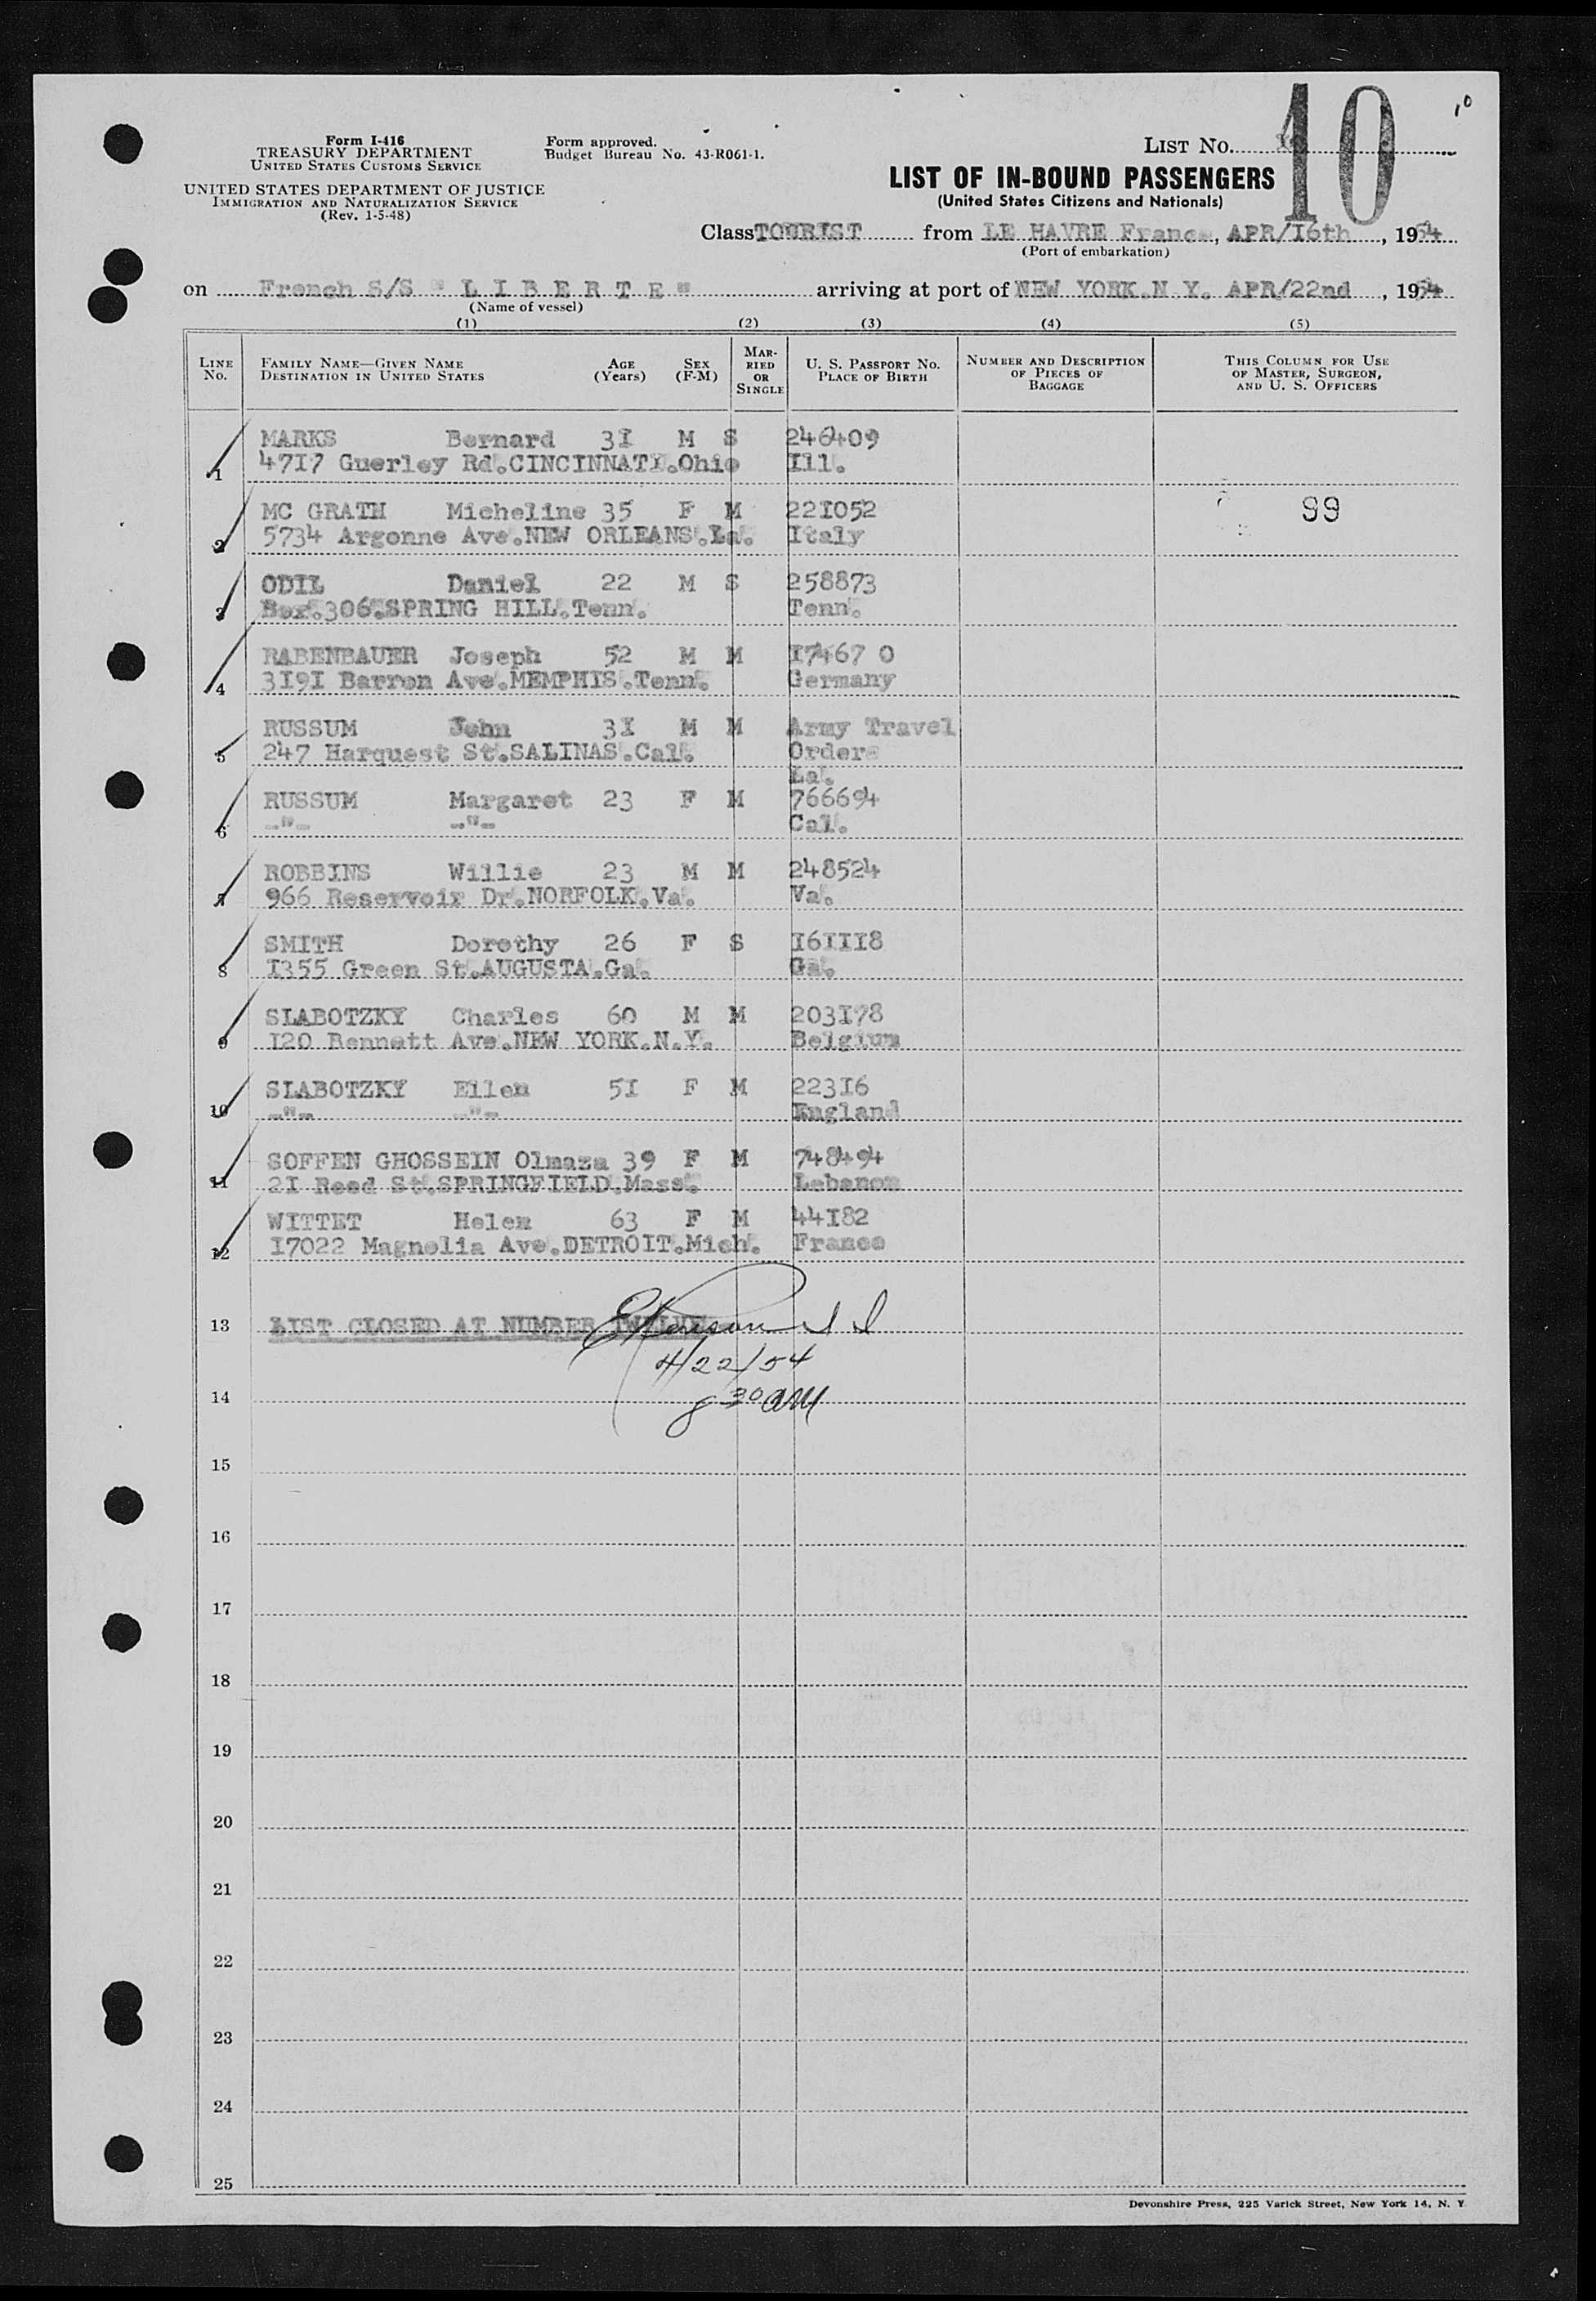 10
Form I-416
TREASURY DEPARTMENT
UNITED STATES CUSTOMS SERVICE
UNITED STATES DEPARTMENT OF JUSTICE
IMMIGRATION AND NATURALIZATION SERVICE
(Rev. 1-5-48)
Form approved.
Budget Bureau No. 43-R061-1.
LIST No. 10
LIST OF IN-BOUND PASSENGERS
(United States Citizens and Nationals)
Class TOURIST from LE HAVRE France, APR/I6th, 1954
(Port of embarkation)
on French S/S " L I B E R T E " arriving at port of NEW YORK.N.Y. APR/22nd, 1954
(Name of vessel)
(1) (2) (3) (4) (5)
LINE No. FAMILY NAME—GIVEN NAME DESTINATION IN UNITED STATES AGE (Years) SEX (F-M) MARRIED OR SINGLE U. S. PASSPORT No. PLACE OF BIRTH NUMBER AND DESCRIPTION OF PIECES OF BAGGAGE THIS COLUMN FOR USE OF MASTER, SURGEON, AND U. S. OFFICERS
MARKS Bernard 3I M S 246409
1 47I7 Guerley Rd.CINCINNATI.Ohio Ill.
MC GRATH Micheline 35 F M 22I052 99
2 5734 Argonne Ave.NEW ORLEANS.La. Italy
ODIL Daniel 22 M S 258873
3 Box.306.SPRING HILL.Tenn. Tenn.
RABENBAUER Joseph 52 M M I7467 0
4 3I9I Barron Ave.MEMPHIS.Tenn. Germany
RUSSUM John 3I M M Army Travel
5 247 Harquest St.SALINAS.Cal. Orders
La.
RUSSUM Margaret 23 F M 766694
6 -"- -"- Cal.
ROBBINS Willie 23 M M 248524
7 966 Reservoir Dr.NORFOLK.Va. Va.
SMITH Dorothy 26 F S I6III8
8 I355 Green St.AUGUSTA.Ga. Ga.
SLABOTZKY Charles 60 M M 203I78
9 I20 Bennett Ave.NEW YORK.N.Y. Belgium
SLABOTZKY Ellen 5I F M 223I6
10 -"- -"- England
SOFFEN GHOSSEIN Olmaza 39 F M 748494
11 2I Reed St.SPRINGFIELD.Mass. Lebanon
WITTET Helen 63 F M 44I82
12 I7022 Magnolia Ave.DETROIT.Mich. France
13 LIST CLOSED AT NUMBER TWELVE
4/22/54
14 8 30 AM
15
16
17
18
19
20
21
22
23
24
25
Devonshire Press, 225 Varick Street, New York 14, N. Y.